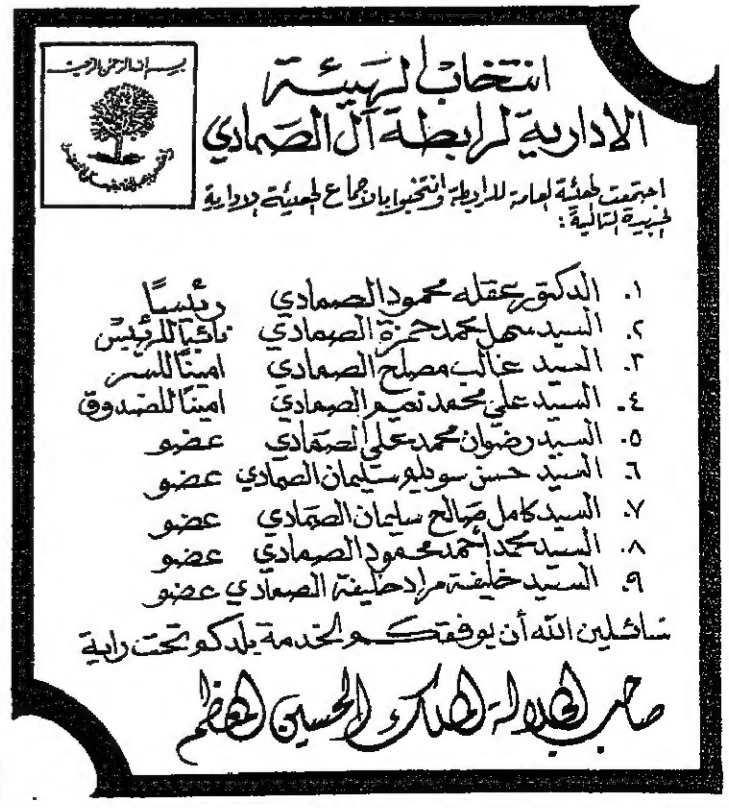 بسم الله الرحمن الرحيم
انتخاب الهيئة
الادارية لرابطة آل الصمادي
اجتمعت الهيئة العامة للرابطة وانتخبوا بالاجماع الهيئة الادارية
الجديدة التالية:
١. الدكتور عقله محمود الصمادي رئيسًا
٢. السيد سهل محمد حمزة الصمادي نائبًا للرئيس
٣. السيد غالب مصلح الصمادي امينًا للسر
٤. السيد علي محمد نعيم الصمادي امينًا للصندوق
٥. السيد رضوان محمد علي الصمادي عضو
٦. السيد حسن سويلم سليمان الصمادي عضو
٧. السيد كامل صالح سليمان الصمادي عضو
٨. السيد محمد أحمد محمود الصمادي عضو
٩. السيد خليفة مراد خليفة الصمادي عضو
سائلين الله أن يوفقكم لخدمة بلدكم تحت راية
صاحب الجلالة الملك الحسين المعظم